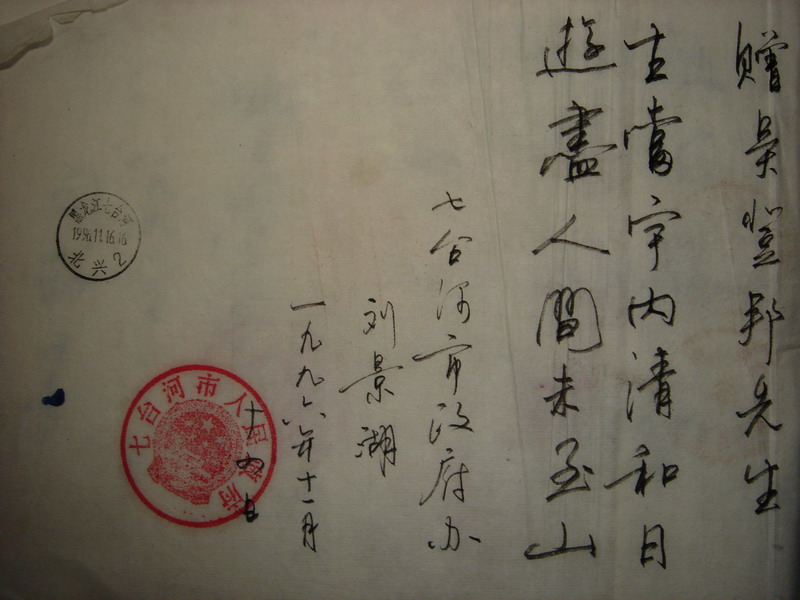 赠吴登邦先生
生当宇内清和日
遊盡人間未至山
七台河市政府办
刘景湖
一九九六年十一月
十四日
七台河市人民政府
黑龙江七台河
1996.11.16.16
北兴 2